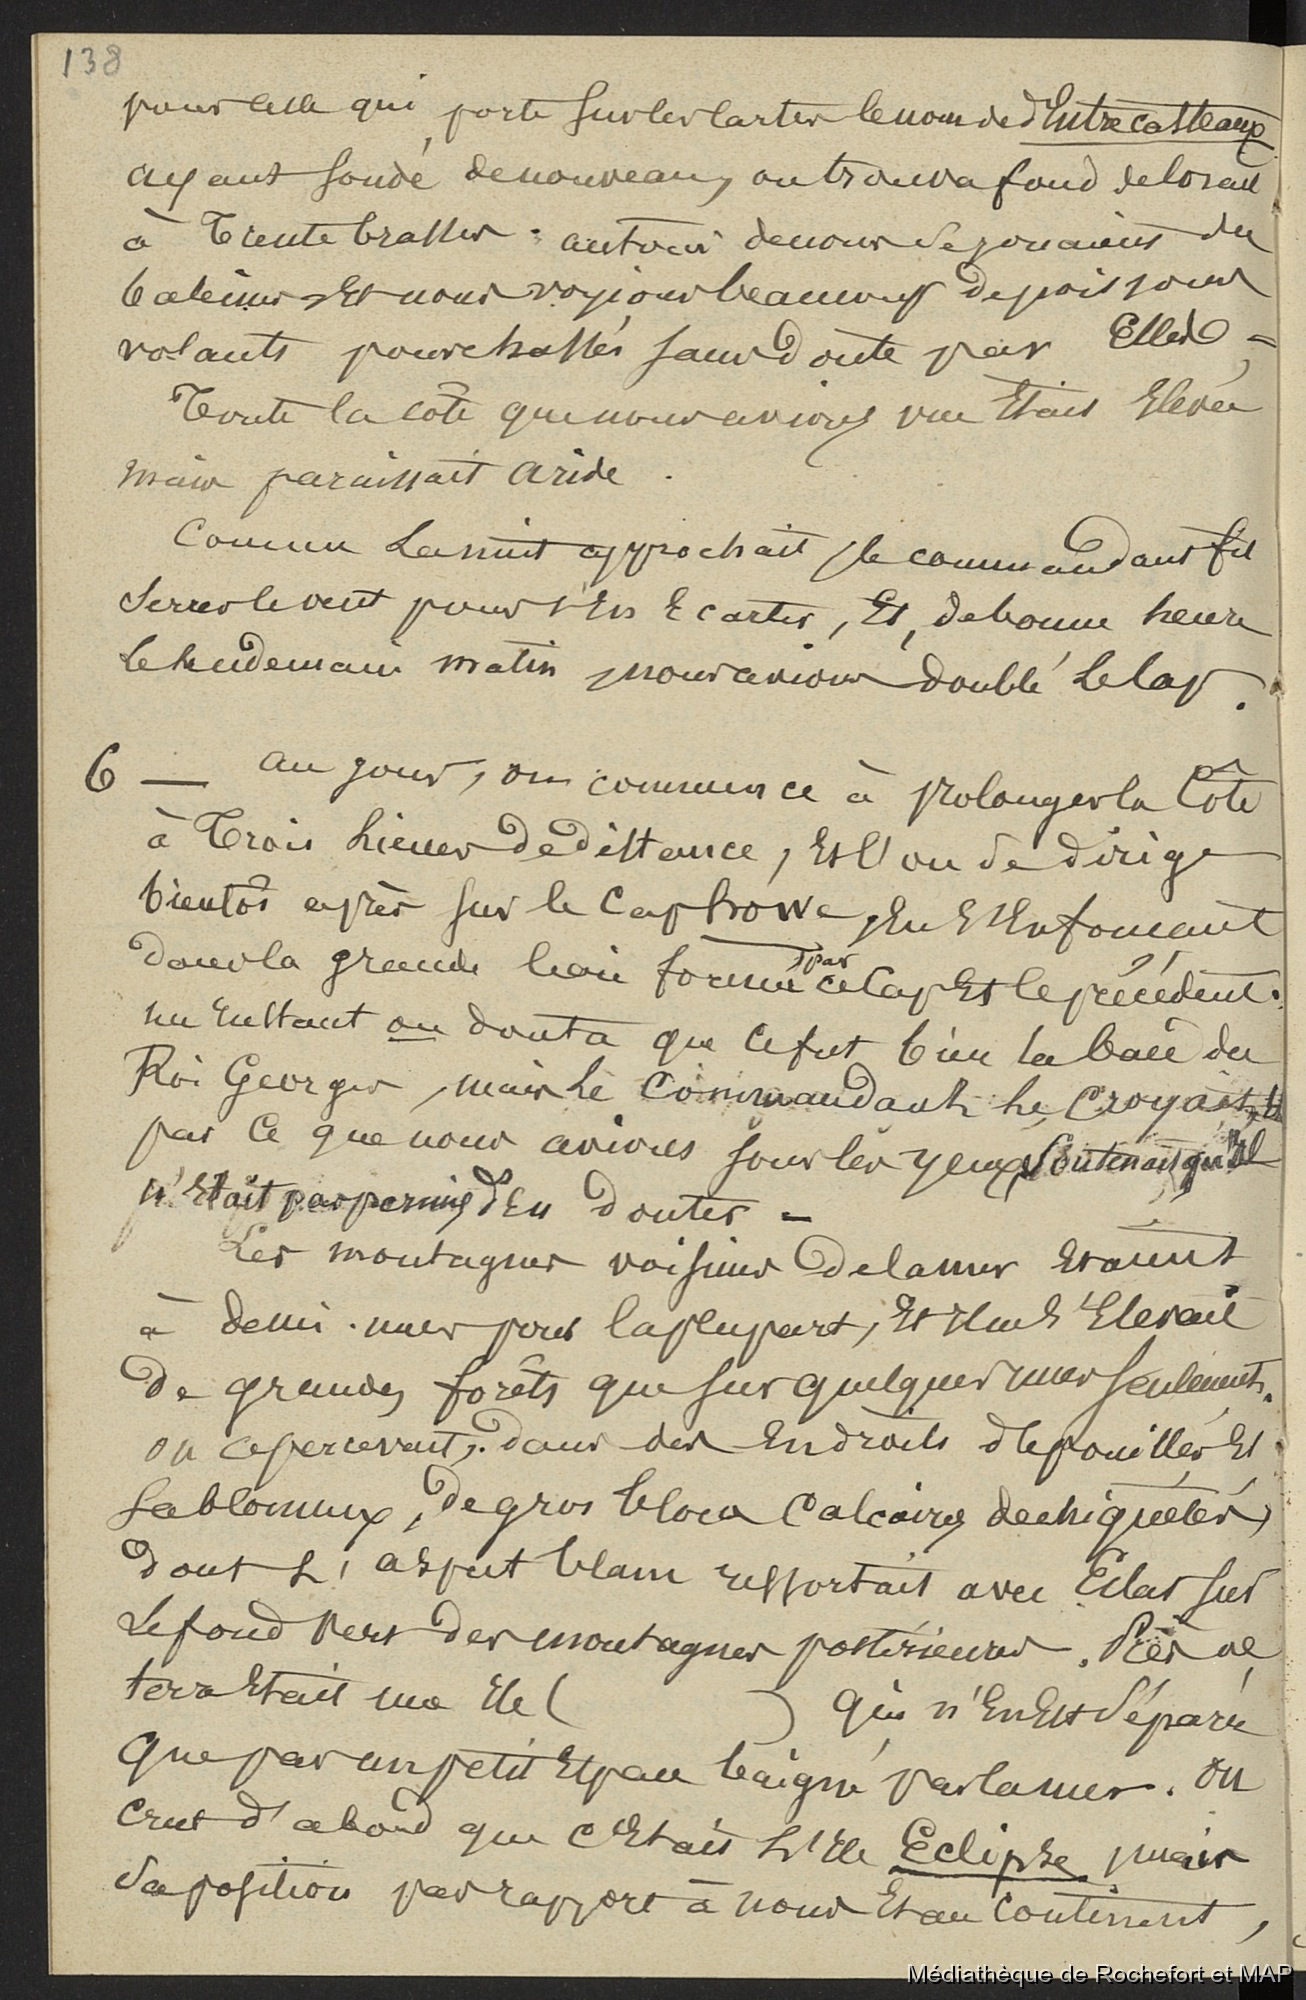 138
pour celle qui porte sur les cartes le nom de d'Entrecasteaux
ayant sondé de nouveau, on trouva fond de corail
à Trente brasses. autour de nous se jouaient des
baleines, Et nous voyions beaucoup de poissons
volants pourchassés sans doute par Elles =
Toute la côte que nous avions vue Etait Elevée
mais paraissait aride.
Comme La nuit approchait, le commandant fit
Serrer le vent pour s'En Ecarter, Et, de bonne heure
le lendemain matin, nous avions doublé Le Cap.
6 — au jour, on commence à prolonger la Côte
à Trois Lieues De distance, Et l'on se dirige
bientôt après sur le Cap howe, En s'Enfonçant
Dans la grande baie formée par ce Cap Et le précédent.
un Instant on douta que ce fut bien la baie du
Roi Georges, mais Le Commandant Le Croyait, Et
par Ce que nous avions sous les yeux Soutenait qu'Il
n'Etait pas permis d'En Douter =
Les montagnes voisines De la mer Etaient
à demi-nues pour la plupart, Et Il ne s'Elevait
De grandes forêts que sur quelques unes seulement.
on apercevait, dans des Endroits dépouillés Et
Sablonneux, De gros blocs Calcaires dechiquetés,
Dont L'aspect blanc ressortait avec Eclat sur
Le fond Vert Des montagnes postérieures. Près de
terre Etait une Ile ( ) Qui n'En Est séparée
Que par un petit Espace baigné par la mer. on
Crut d'abord que c'Etait L'Ile Eclipse, mais
Sa position par rapport à nous Et au Continent,
Médiathèque de Rochefort et MAP